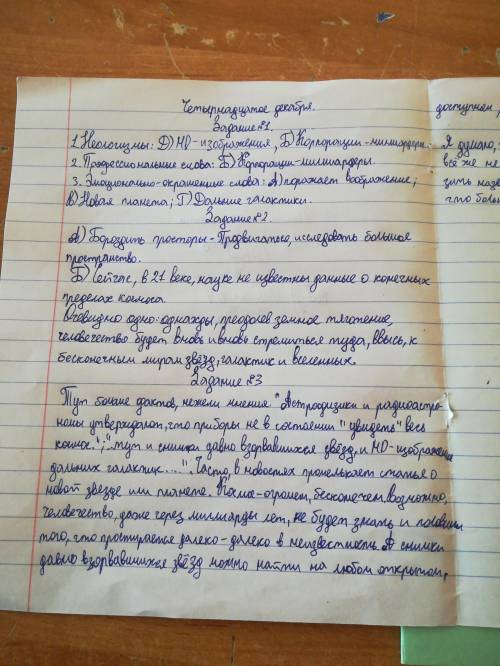 Четырнадцатое декабря.
Задание №1.
1. Неологизмы: Д) HD-изображения, Б) Корпорации-миллиардеры.
2. Профессиональные слова: Б) Корпорации-миллиардеры.
3. Эмоционально-окрашенные слова: А) поражает воображение;
В) Новая планета; Г) Дальние галактики.
Задание №2.
А) Бороздить просторы - Продвигаться, исследовать большое
пространство.
Б) Сейчас, в 21 веке, науке не известны данные о конечных
пределах космоса.
Очевидно одно: однажды, преодолев земное тяготение,
человечество будет вновь и вновь стремиться туда, ввысь, к
бесконечным мирам звёзд, галактик и вселенных.
Задание №3
Тут больше фактов, нежели мнения "Астрофизики и радиоастро-
номы утверждают, что приборы не в состоянии "увидеть" весь
космос."; "...тут и снимки давно взорвавшихся звёзд, и HD-изображения
дальних галактик ...". Часто, в новостях промелькает статья о
новой звезде или планете. Космос-огромен, бесконечен, возможно,
человечество, даже через миллиарды лет, не будет знать и половины
того, что простирается далеко-далеко в неизвестность. А снимки
давно взорвавшихся звёзд можно найти на любом открытом,
доступном
Я думаю,
все же не
зить
что боль